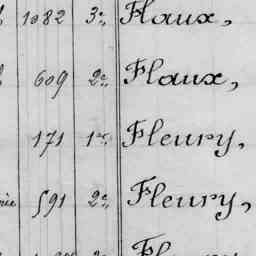 1082 3e, Flaux,
609 2e, Flaux,
171 1re, Fleury,
591 2e, Fleury,